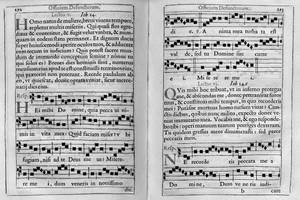 Officium Defunctorum.
Lectio v. Job 14.
HOmo natus de muliere, brevi vivens tempore,
repletur multis miseriis. Qui quasi flos egre-
ditur & conteritur, & fugit velut umbra, & num-
quam in eodem statu permanet. Et dignum ducis
super hujuscemodi aperire oculos tuos, & adducere
eum tecum in judicium? Quis potest facere
mundum de immundo conceptum semine? nonne
tu qui solus es? Breves dies hominis sunt, numerus
mensium ejus apud te est: constituisti terminos
ejus, qui præteriri non poterunt. Recede paululum ab
eo, ut quiescat, donec optata veniat, sicut mercena-
rii, dies ejus.
Resp.
HEi mihi Domine, quia peccavi ni-
mis in vita mea: Quid faciam miser? u-bi
fugiam, nisi ad te Deus me us? Misere-
re me i, dum veneris in novissimo
Officium Defunctorum.
di e. ℣. A nima mea turba ta est
val de, sed tu Domine suc curre
e i. Mi se re re
Lectio vj. Job 14.
QUis mihi hoc tribuat, ut in inferno protegas
me, & abscondas me, donec pertranseat furor
tuus, & constituas mihi tempus, in quo recorderis
mei? Putasne mortuus homo rursum vivat? Cunctis
diebus, quibus nunc milito, expecto donec veniat
immutatio mea. Vocabis me, & ego respondebo
tibi: operi manuum tuarum porriges dexteram.
Tu quidem gressus meos dinumerasti: sed parce pec-
catis meis.
Resp.
NE recorde ris pecca ta me a
Do mine, Dum vene ris judi-
b care